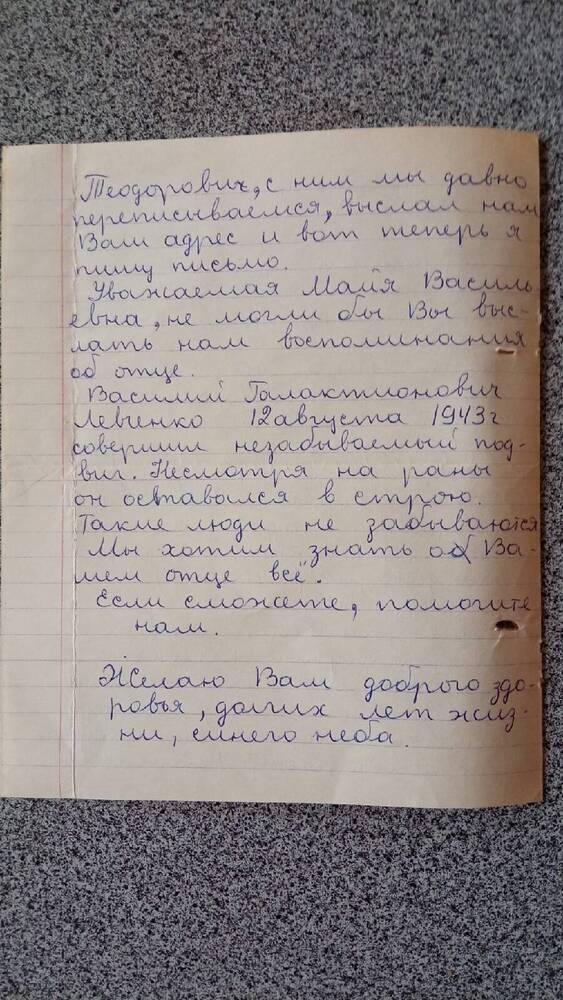 Теодорович, с ним мы давно
переписываемся, выслал нам
Ваш адрес и вот теперь я
пишу письмо.
Уважаемая Майя Василь
евна, не могли бы Вы выс-
лать нам воспоминания
об отце.
Василий Галактионович
Левченко 12 августа 1943 г
совершил незабываемый под-
виг. Несмотря на раны
он оставался в строю.
Такие люди не забываются
Мы хотим знать об Ва-
шем отце всё.
Если сможете, помогите
нам.
Желаю Вам доброго здо-
ровья, долгих лет жиз-
ни, синего неба.